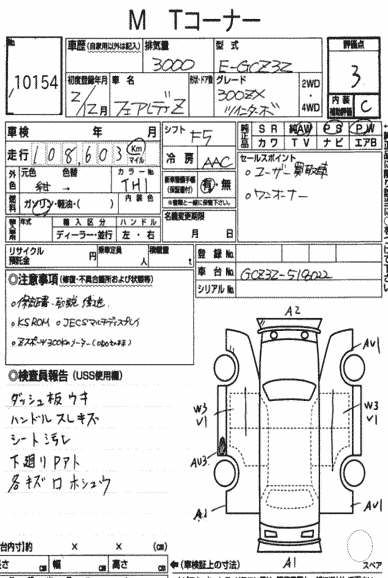 M Tコーナー
No. 10154
車歴 (自家用以外は記入) 排気量 3000 型式 E-GCZ32
評価点 3
内装補助評価 C
初度登録年月 2/2月 車名 フェアレディZ ドア形状 グレード 300ZX ツインターボ 2WD・4WD
車検 年 月
シフト F5
純正品 SR 純AW PS PW
カワ TV ナビ エアB
走行 108,603 Km マイル
冷房 AAC
セールスポイント
○ユーザー買取車
○ワンオーナー
外色 元色 紺 → 色替 カラーNo. TH1 内装色
燃料 ガソリン・軽油・( )
有・無
輸入区分 ハンドル
ディーラー・並行 左・右
名義変更期限 月 日
リサイクル預託金 円 乗車定員 人 積載量 t
登録No.
車台No. GCZ32-519022
シリアルNo.
◎注意事項 (修復・不具合箇所および状態等)
○KSROM ○JECSマルチディスプレイ
◎検査員報告 (USS使用欄)
ダッシュ板ウキ
ハンドルスレキズ
シート汚レ
下廻りPアト
各キズロホシュウ
A2
AU1
W3 V1
W3 V1
AU3
A1
AU1
A1
(車検証上の寸法)
幅 cm 高さ cm
スペア